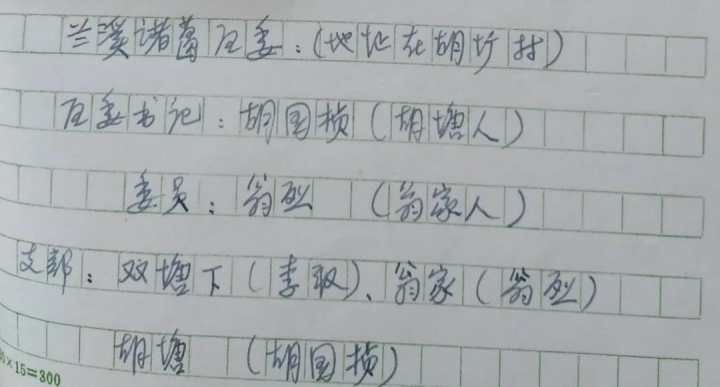 兰溪诸葛区委:(地址在胡圹村)
区委书记:胡国桢(胡塘人)
委员:翁烈 (翁家人)
支部:双塘下(李取)、翁家(翁烈)
胡塘 (胡国桢)
×15=300